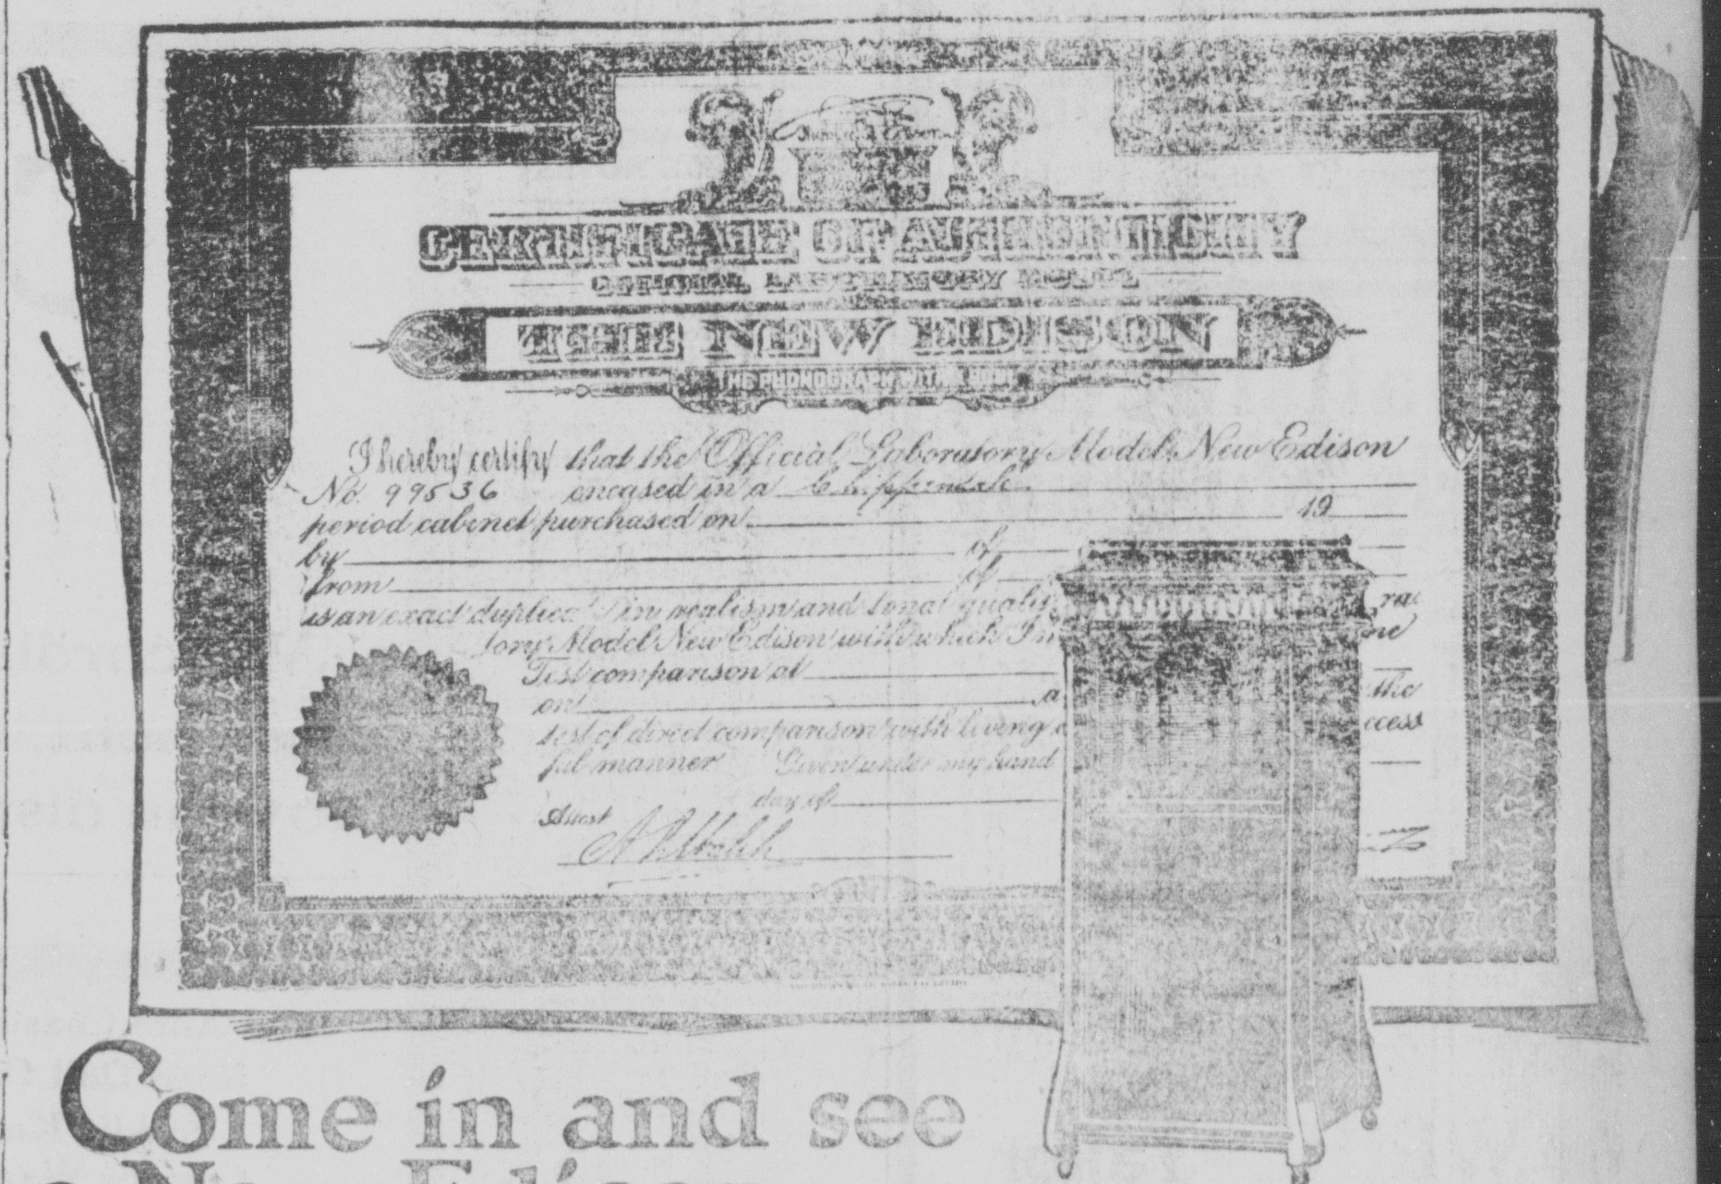 CERTIFICATE OF AUTHENTICITY
OFFICIAL LABORATORY MODEL
THE NEW EDISON
THE PHONOGRAPH WITH A SOUL
I hereby certify that the Official Laboratory Model New Edison
No. 99536 encased in a Chippendale
period cabinet purchased on 19
by of
from of
is an exact duplicate in realism and tonal quality
tory Model New Edison with which
Test comparison at
on a the
test of direct comparison with living ccess
ful manner Given under my hand
day of
Attest
Come in and see
a New Edison